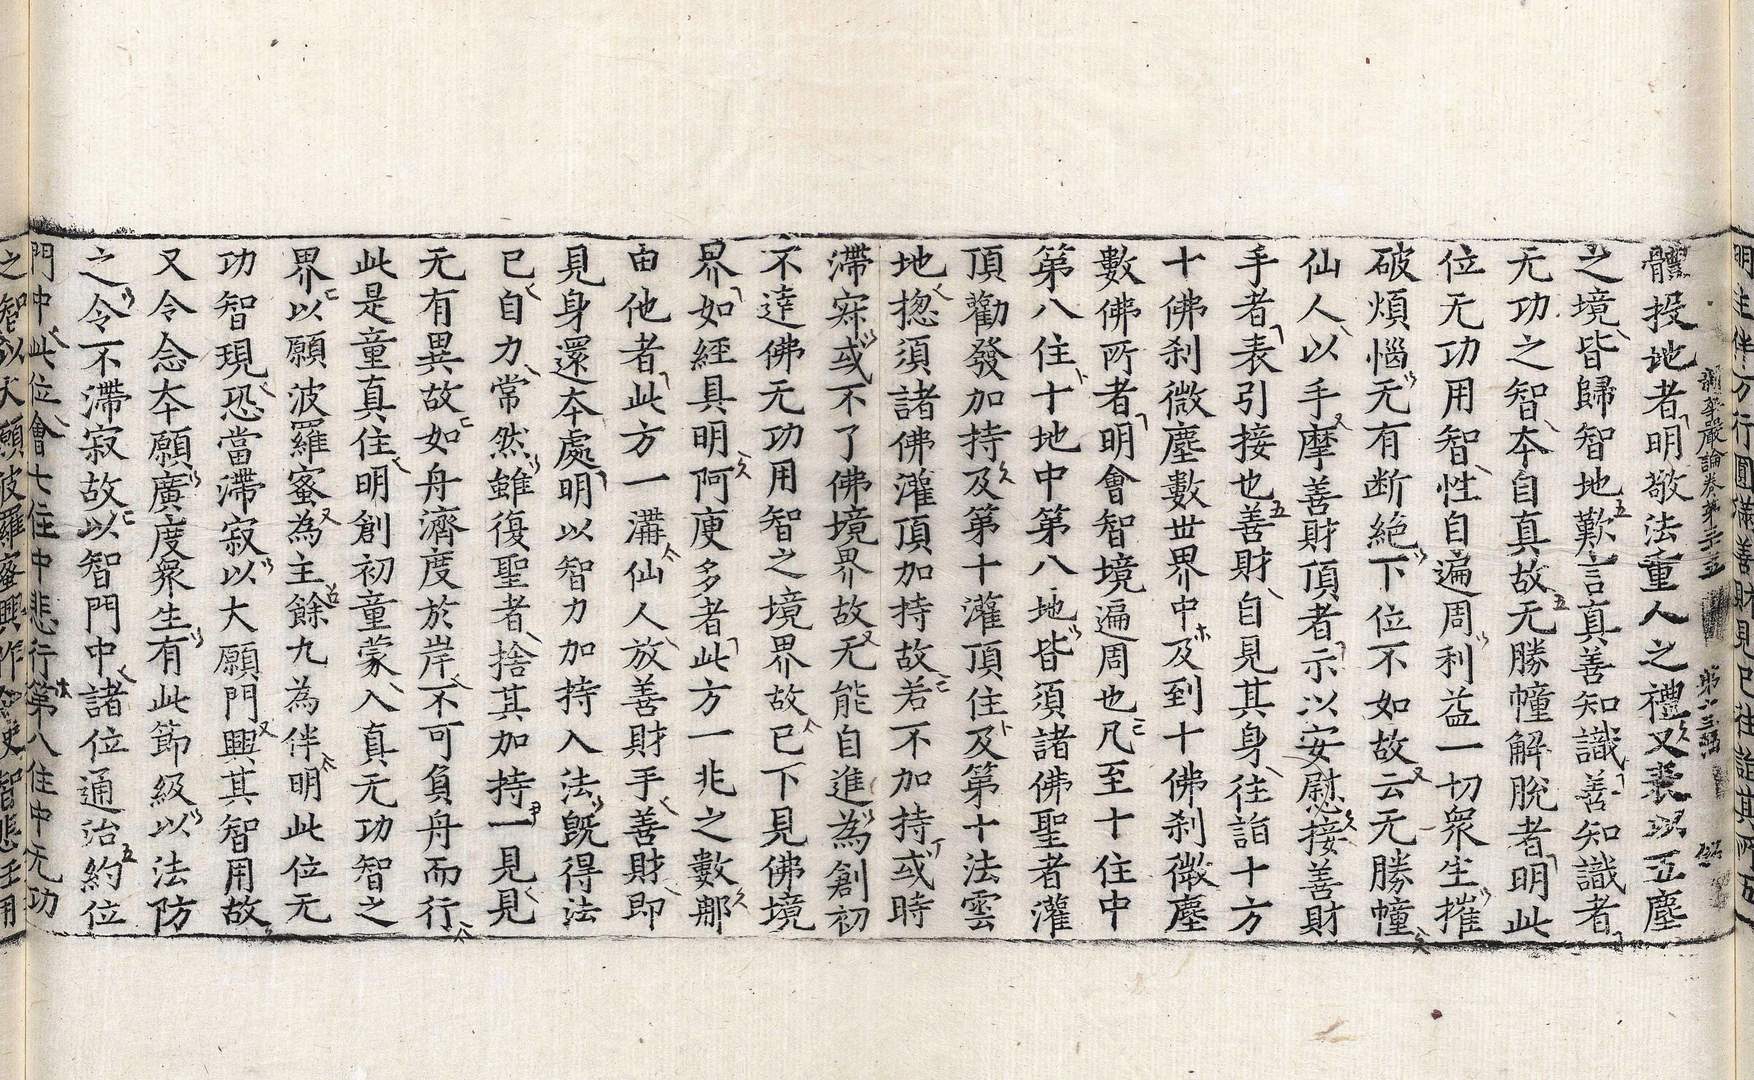 明主伴万行圓滿善財見已往詣其所五
體投地者明敬法重人之禮又表以五塵
之境皆歸智地歎言真善知識善知識者
无功之智夲自真故无勝幢解脫者明此
位无功用智性自遍周利益一切衆生摧
破煩惱无有断絶下位不如故云无勝幢
仙人以手摩善財頂者示以安慰接善財
手者表引接也善財自見其身往詣十方
十佛刹微塵數世界中及到十佛刹微塵
數佛所者明會智境遍周也凡至十住中
第八住十地中第八地皆須諸佛聖者灌
頂勸發加持及第十灌頂住及第十法雲
地揔須諸佛灌頂加持故若不加持或時
滯寂或不了佛境界故无能自進為創初
不達佛无功用智之境界故已下見佛境
界如經具明阿庾多者此方一兆之數那
由他者此方一溝仙人放善財手善財即
見身還夲處明以智力加持入法旣得法
已自力常然雖復聖者捨其加持一見見
无有異故如舟濟度於岸不可負舟而行
此是童真住明創初童蒙入真无功智之
界以願波羅蜜為主餘九為伴明此位无
功智現恐當滯寂以大願門興其智用故
又令念夲願廣度衆生有此節級以法防
之令不滯寂故以智門中諸位通治約位
門中此位會七住中悲行第八住中无功
之智以大願波羅蜜興